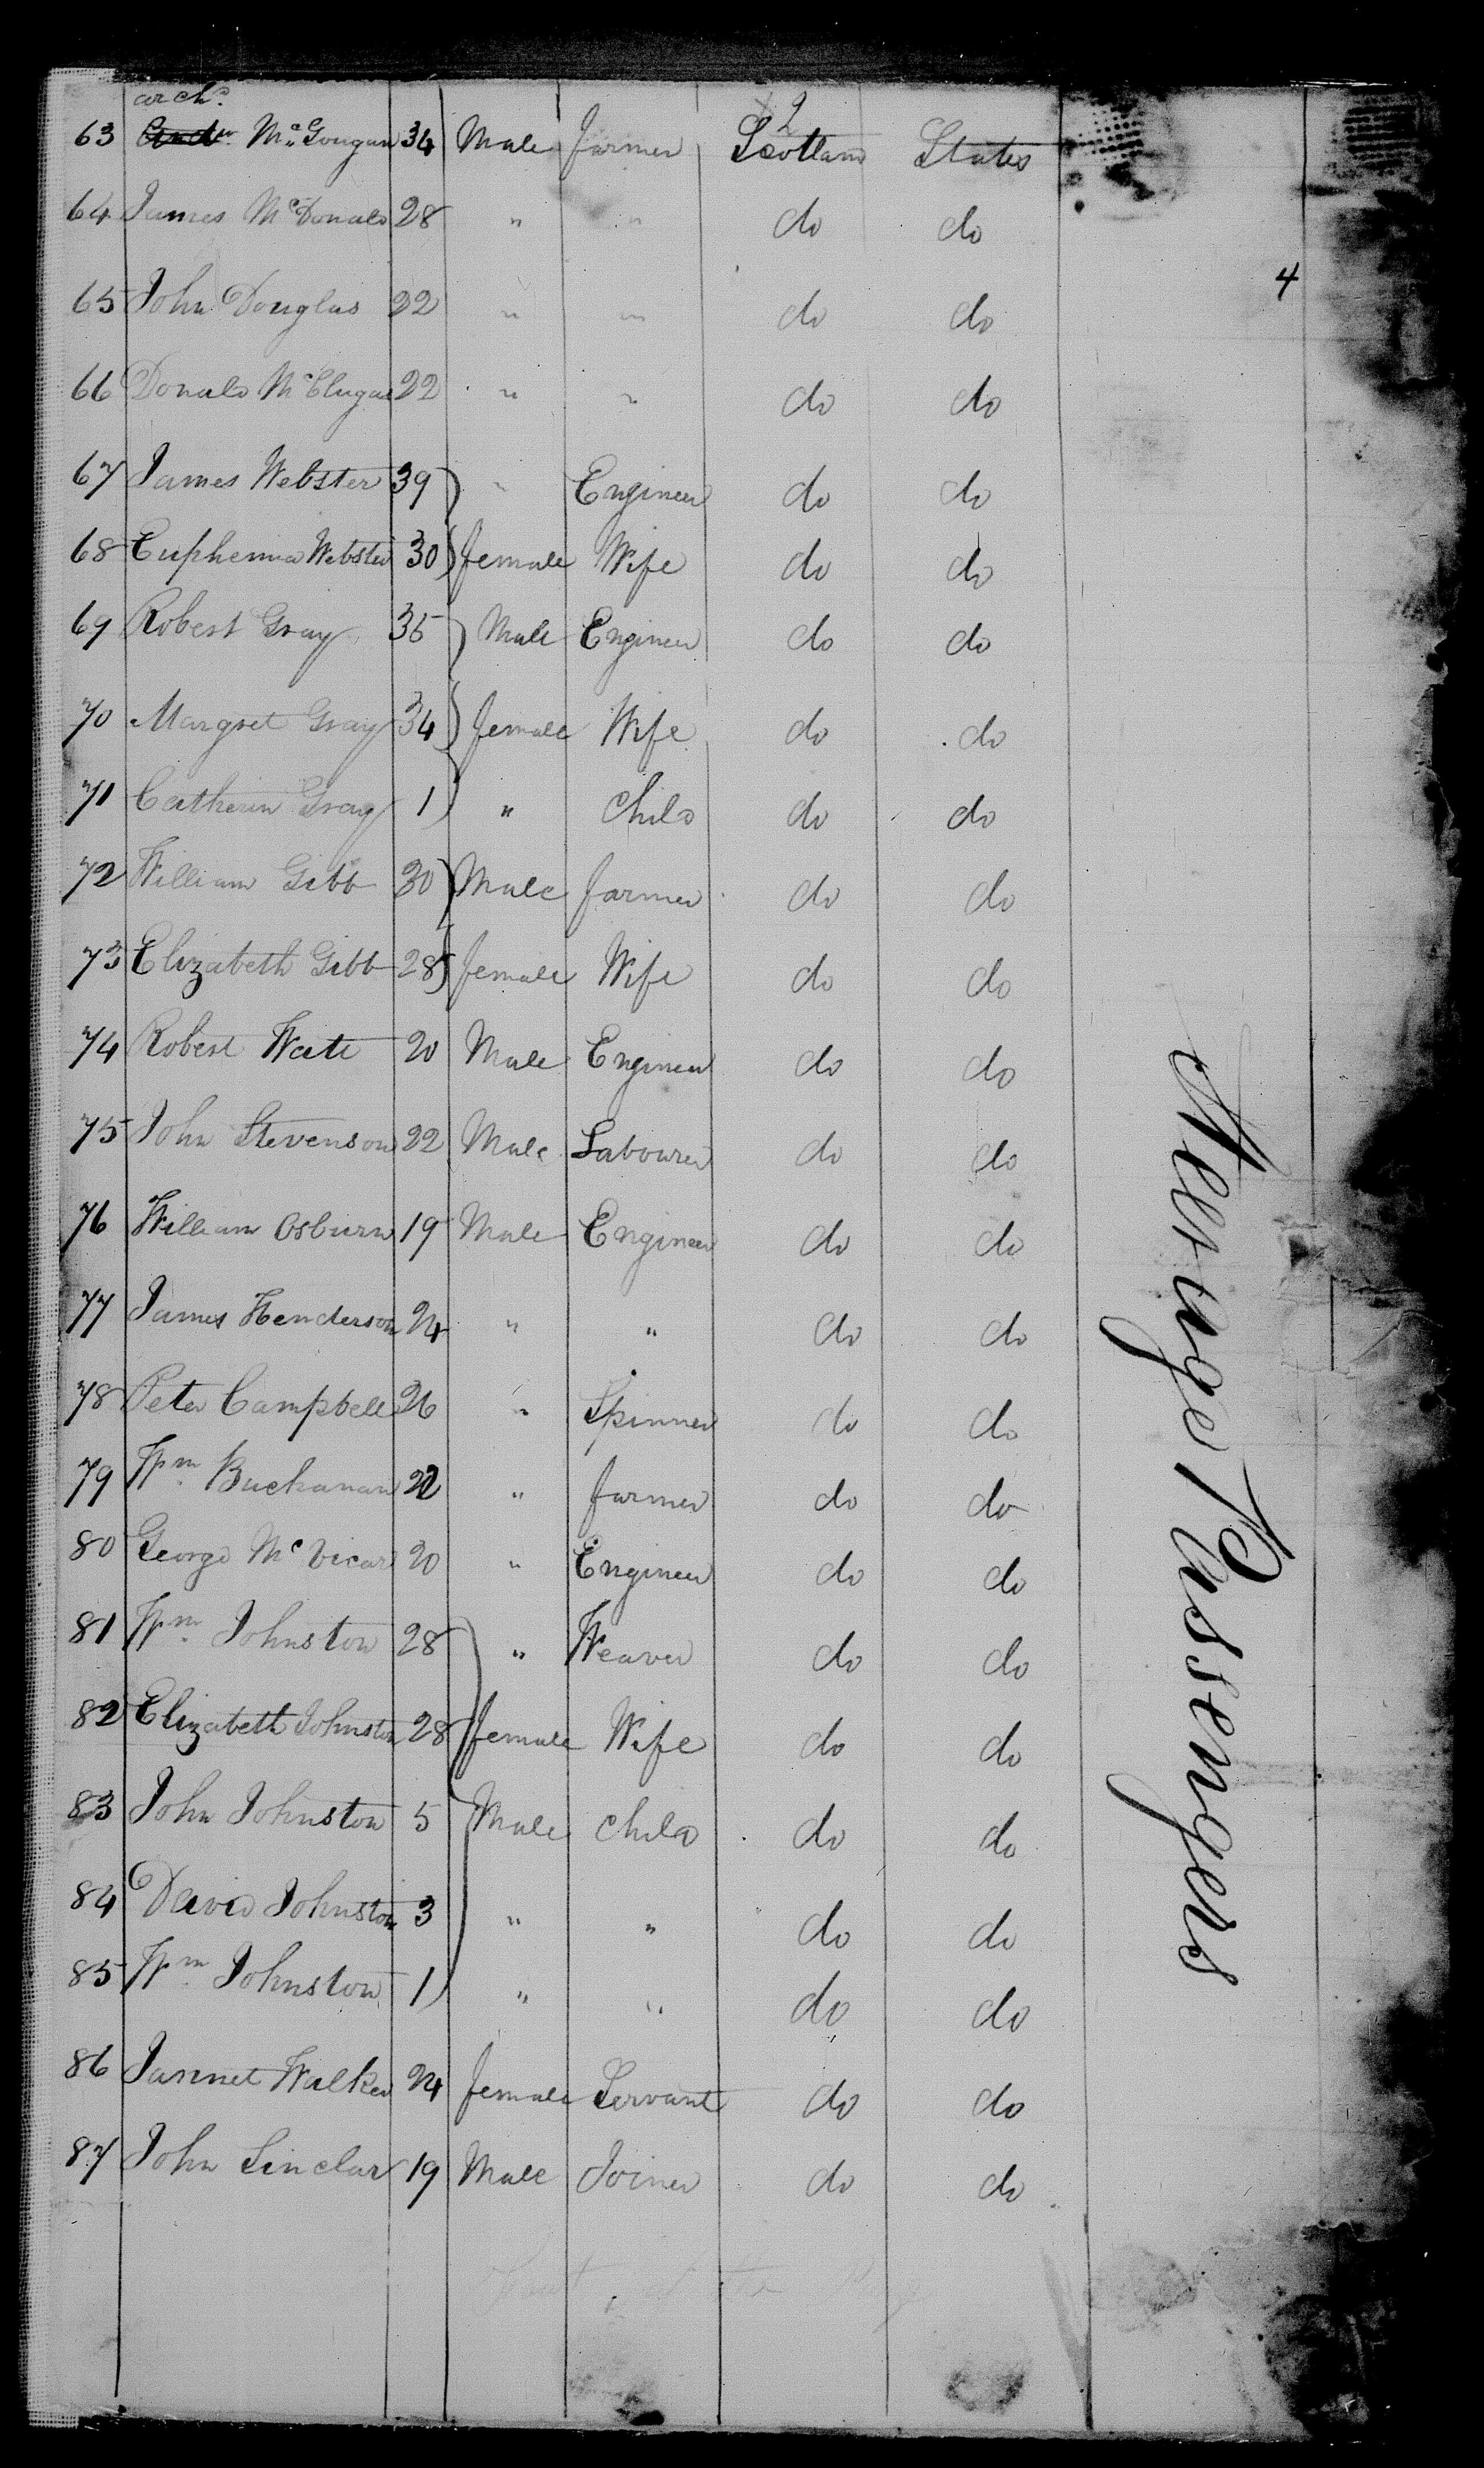 2
arch.
63 Andw McGougan 34 Male farmer Scotland States
64 James McDonald 28 " " do do
4
65 John Douglas 22 " " do do
66 Donald McClugas 22 " " do do
67 James Webster 39 " Engineer do do
68 Euphemia Webster 30 female Wife do do
69 Robert Gray 35 Male Engineer do do
70 Margret Gray 34 female Wife do do
71 Catherin Gray 1 " child do do
72 William Gibb 30 Male farmer do do
73 Elizabeth Gibb 28 female Wife do do
74 Robert Wate 20 Male Engineer do do
75 John Stevenson 22 Male Labourer do do
76 William Osburn 19 Male Engineer do do
77 James Henderson 24 " " do do
78 Peter Campbell 26 " Spinner do do
79 Wm Buchanan 22 " farmer do do
80 George McVicar 20 " Engineer do do
81 Wm Johnston 28 " Weaver do do
82 Elizabeth Johnston 28 female Wife do do
83 John Johnston 5 Male child do do
84 David Johnston 3 " " do do
85 Wm Johnston 1 " " do do
86 Jannet Walker 24 female Servant do do
87 John Sinclar 19 Male Joiner do do
Steerage Passengers